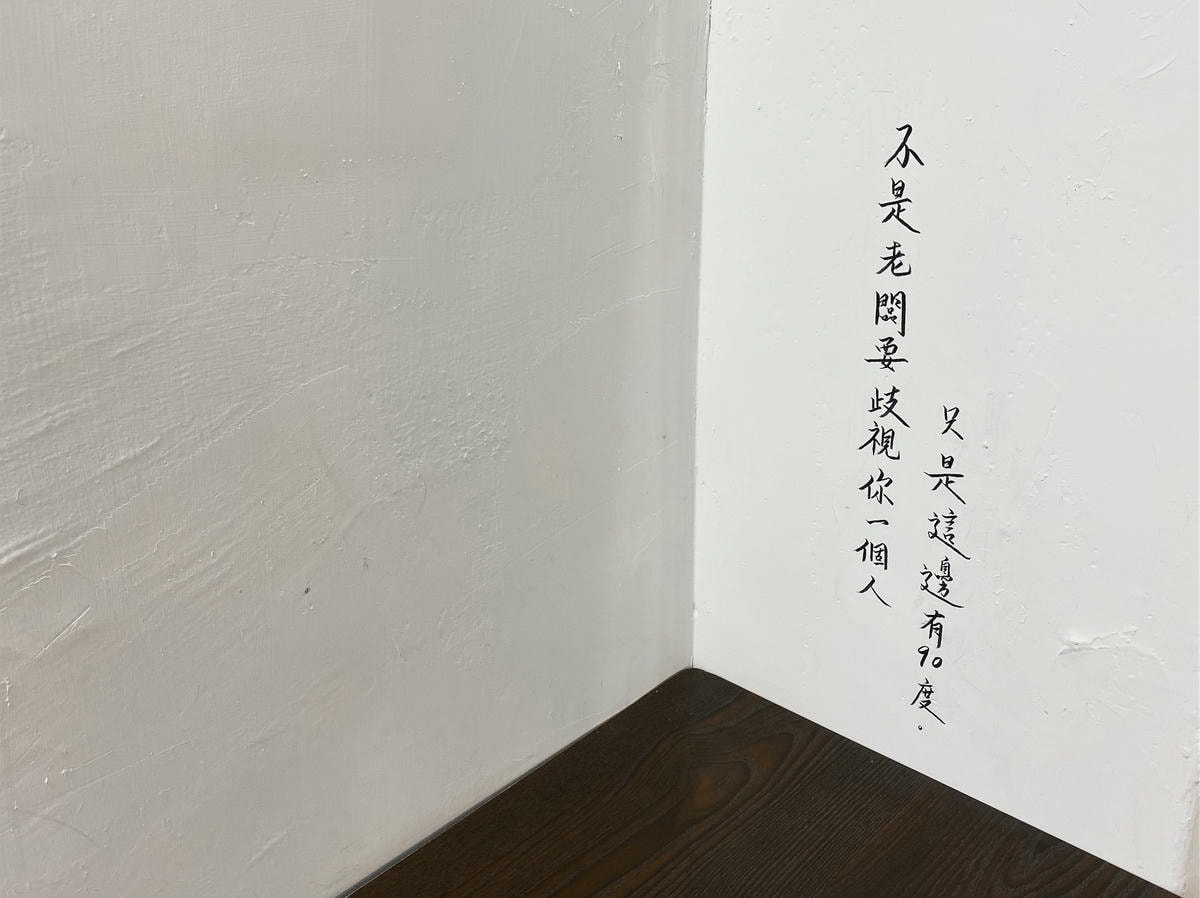 不是老闆要歧視你一個人
只是這邊有90度。